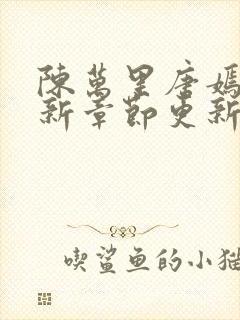 陳萬里唐嫣
新章節更新
喫鯊魚的小猫